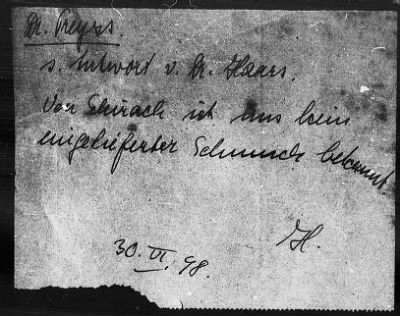 Dr. Preyss
s. Antwort v. Dr. Haars.
Von Schirach ist uns kein
eingelieferter Schmuck bekannt.
H.
30. VI. 48.